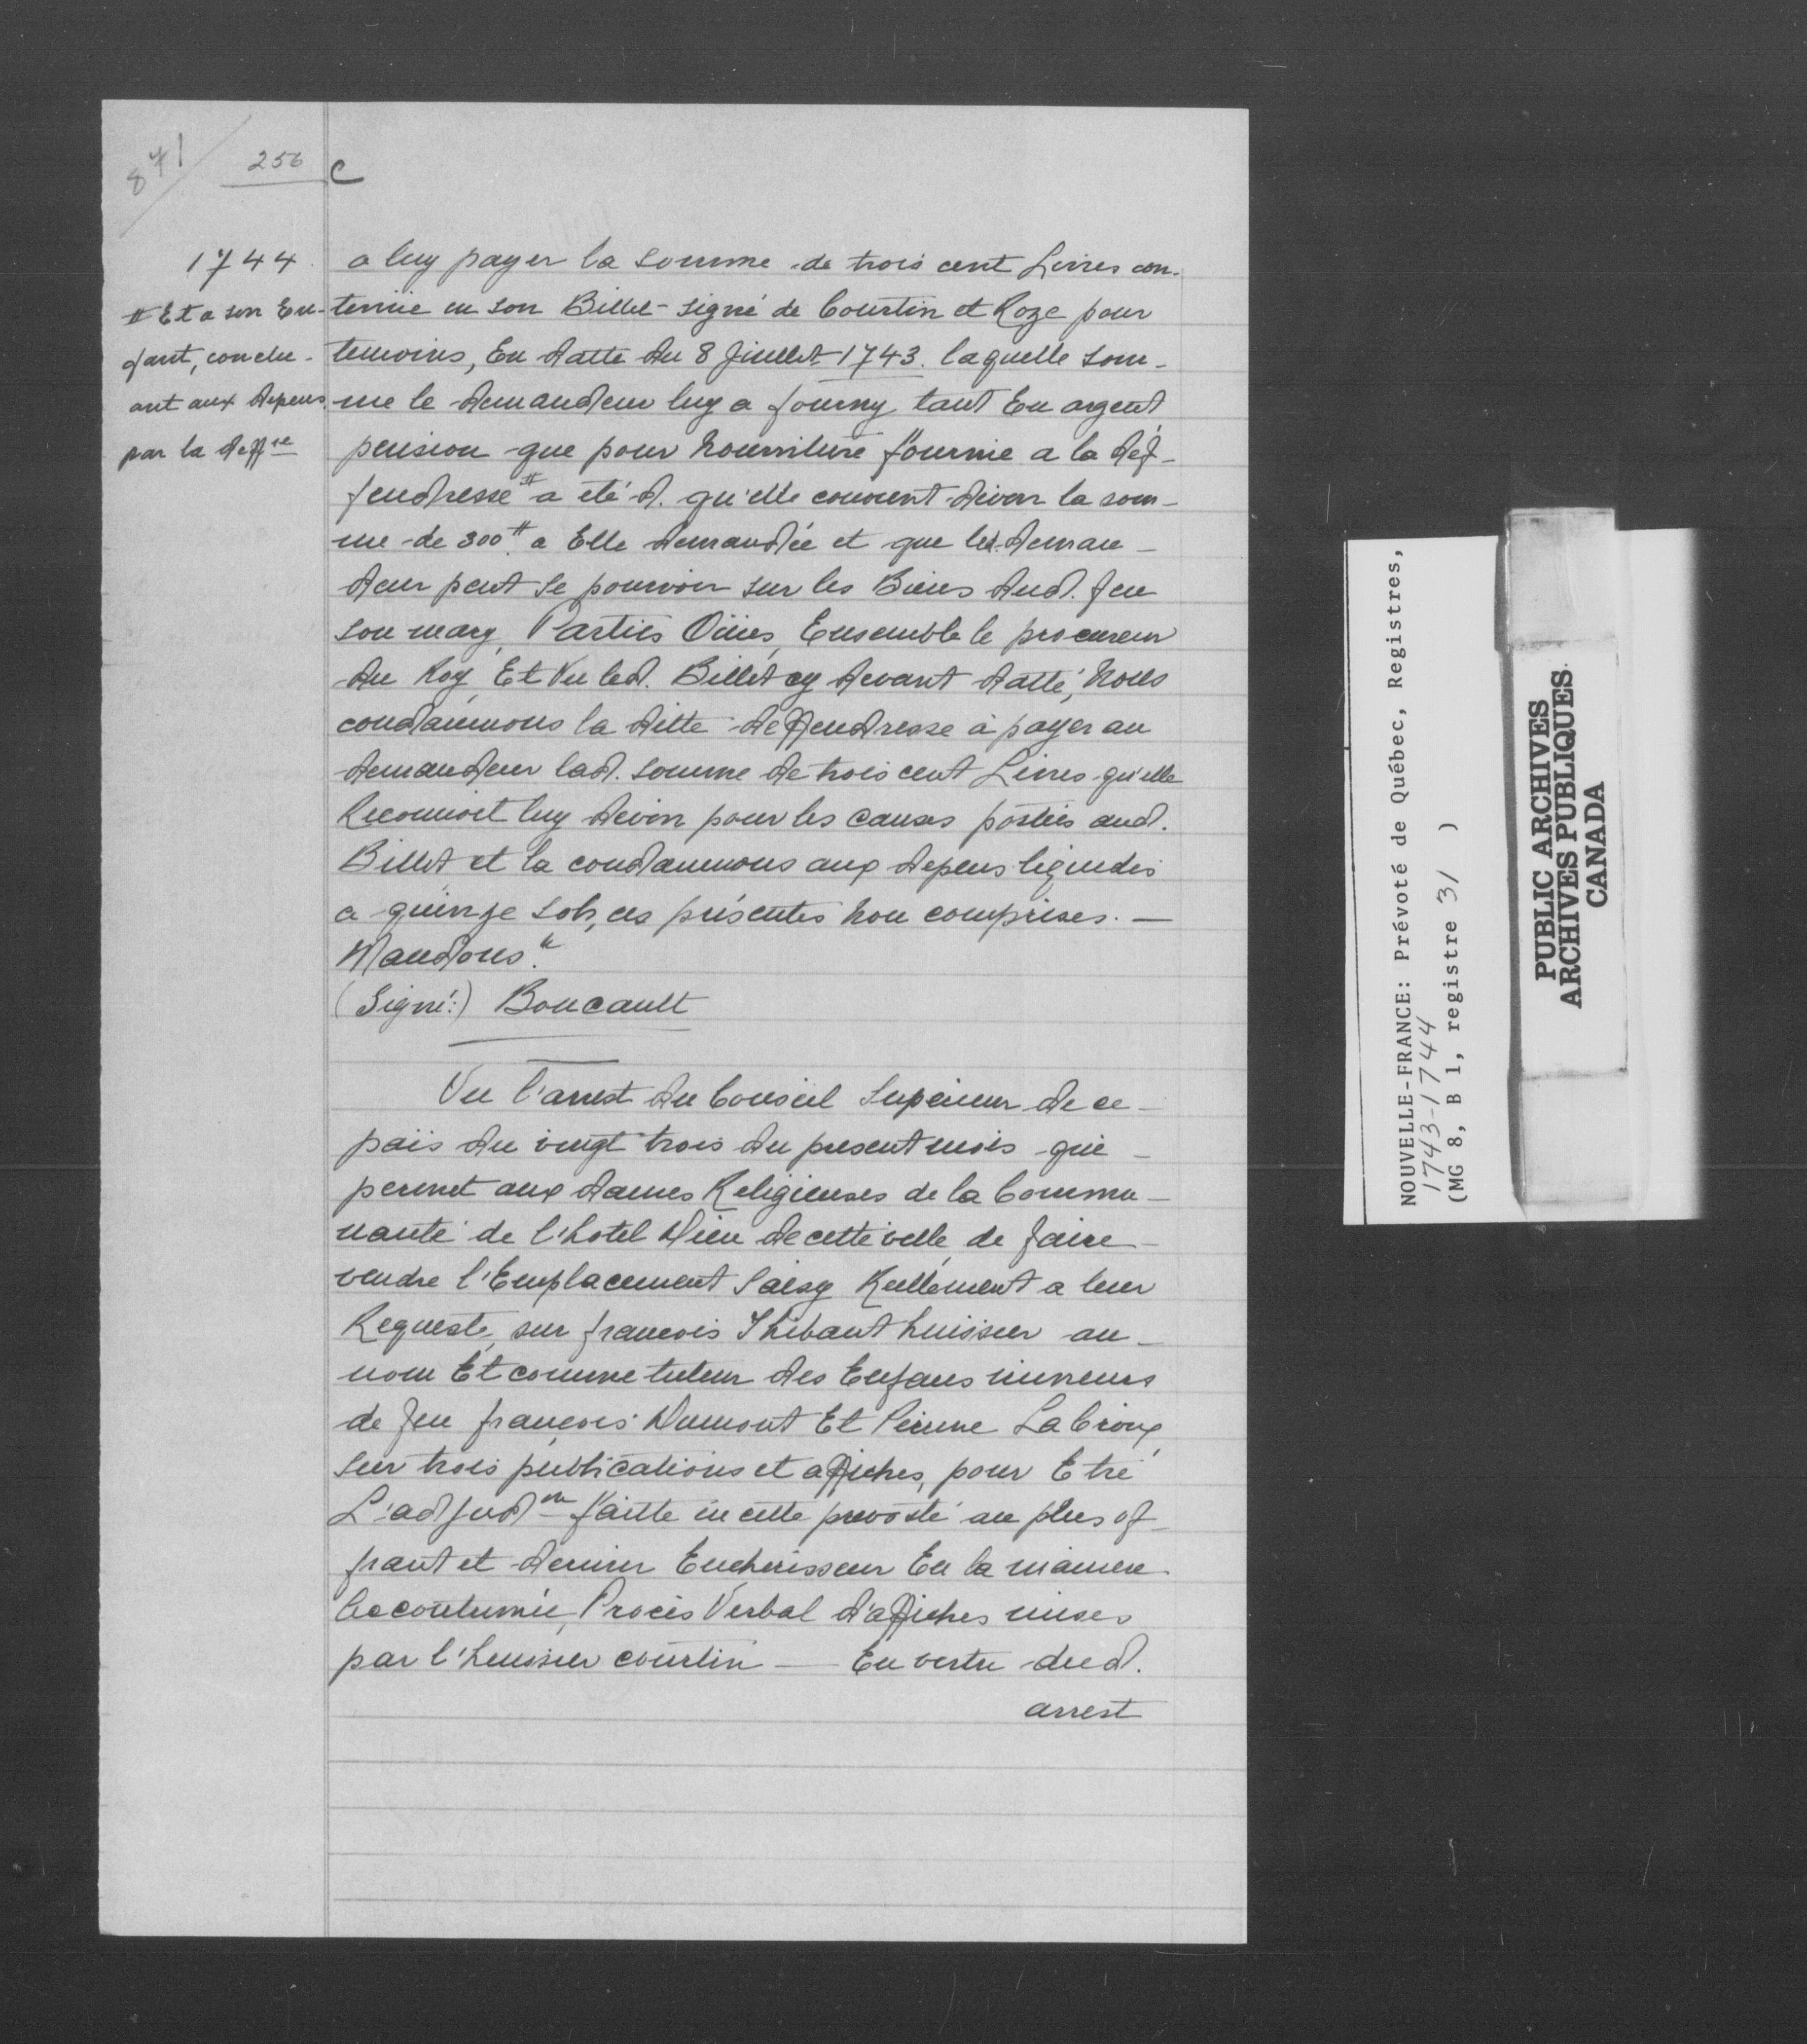 871
256 C
1744
# Et a son En-
fant, conclu-
ant aux depens
par la deff.se
a luy payer la somme de trois cent Livres con-
tenüe en son Billet signé de Courtin et Roze pour
temoins, En datte du 8 Juillet 1743. laquelle som-
me le demandeur luy a fourny tant En argent,
pension que pour nourriture fournie a la def-
fendresse # a eté d. qu'elle convient devoir la som-
me de 300# a Elle demandée et que led. deman-
deur peut se pourvoir sur les Biens dud. feu
son mary, Parties Oüies, Ensemble le procureur
du Roy, Et Vu led. Billet cy devant datté, Nous
condamnons la ditte deffendresse à payer au
demandeur lad. somme de trois cent Livres qu'elle
Reconnoit luy devoir pour les causes portées aud.
Billet et la condamnons aux depens liquidés
a quinze sols, ces présentes non comprises. —
Mandons &
(Signé:) Boucault
Vu l'arrest du Conseil Supérieur de ce
païs du vingt trois du present mois qui
permet aux dames Religieuses de la Commu-
nauté de l'hotel Dieu de cette ville, de faire
vendre l'Emplacement Saisy Reellement a leur
Requeste, sur francois Thibaut huissier au
nom Et comme tuteur des Enfans mineurs
de feu françois Dumont Et Perinne La Croux,
sur trois publications et affiches, pour Etre
L'adjud.on faitte en cette prevosté au plus of-
frant et dernier Encherisseur En la maniere
accoutumée, Procès Verbal d'affiches mises
par l'huissier courtin — En vertu dud.
arrest
NOUVELLE-FRANCE: Prévoté de Québec, Registres,
1743-1744
(MG 8, B 1, registre 31 )
PUBLIC ARCHIVES
ARCHIVES PUBLIQUES
CANADA